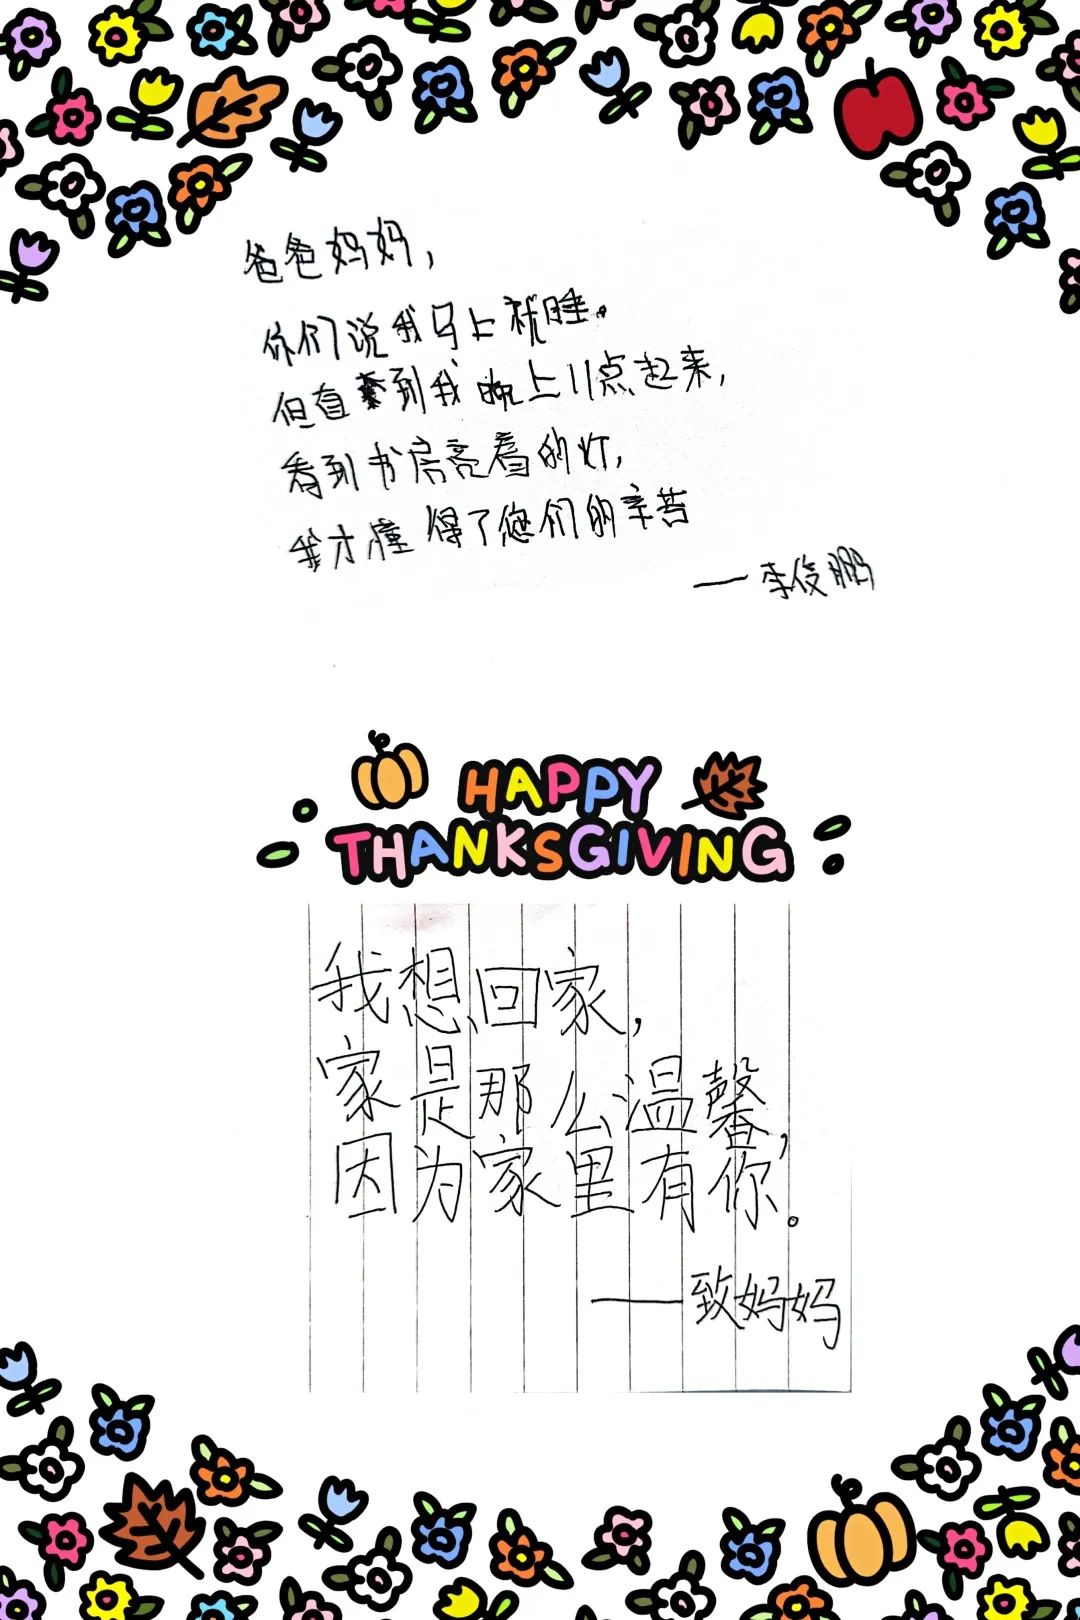 爸爸妈妈，
你们说我马上就睡。
但直到我晚上11点起来，
看到书房亮着的灯，
我才懂得了您们的辛苦
——李俊鹏
HAPPY
THANKSGIVING
我想回家，
家是那么温馨，
因为家里有你。
——致妈妈